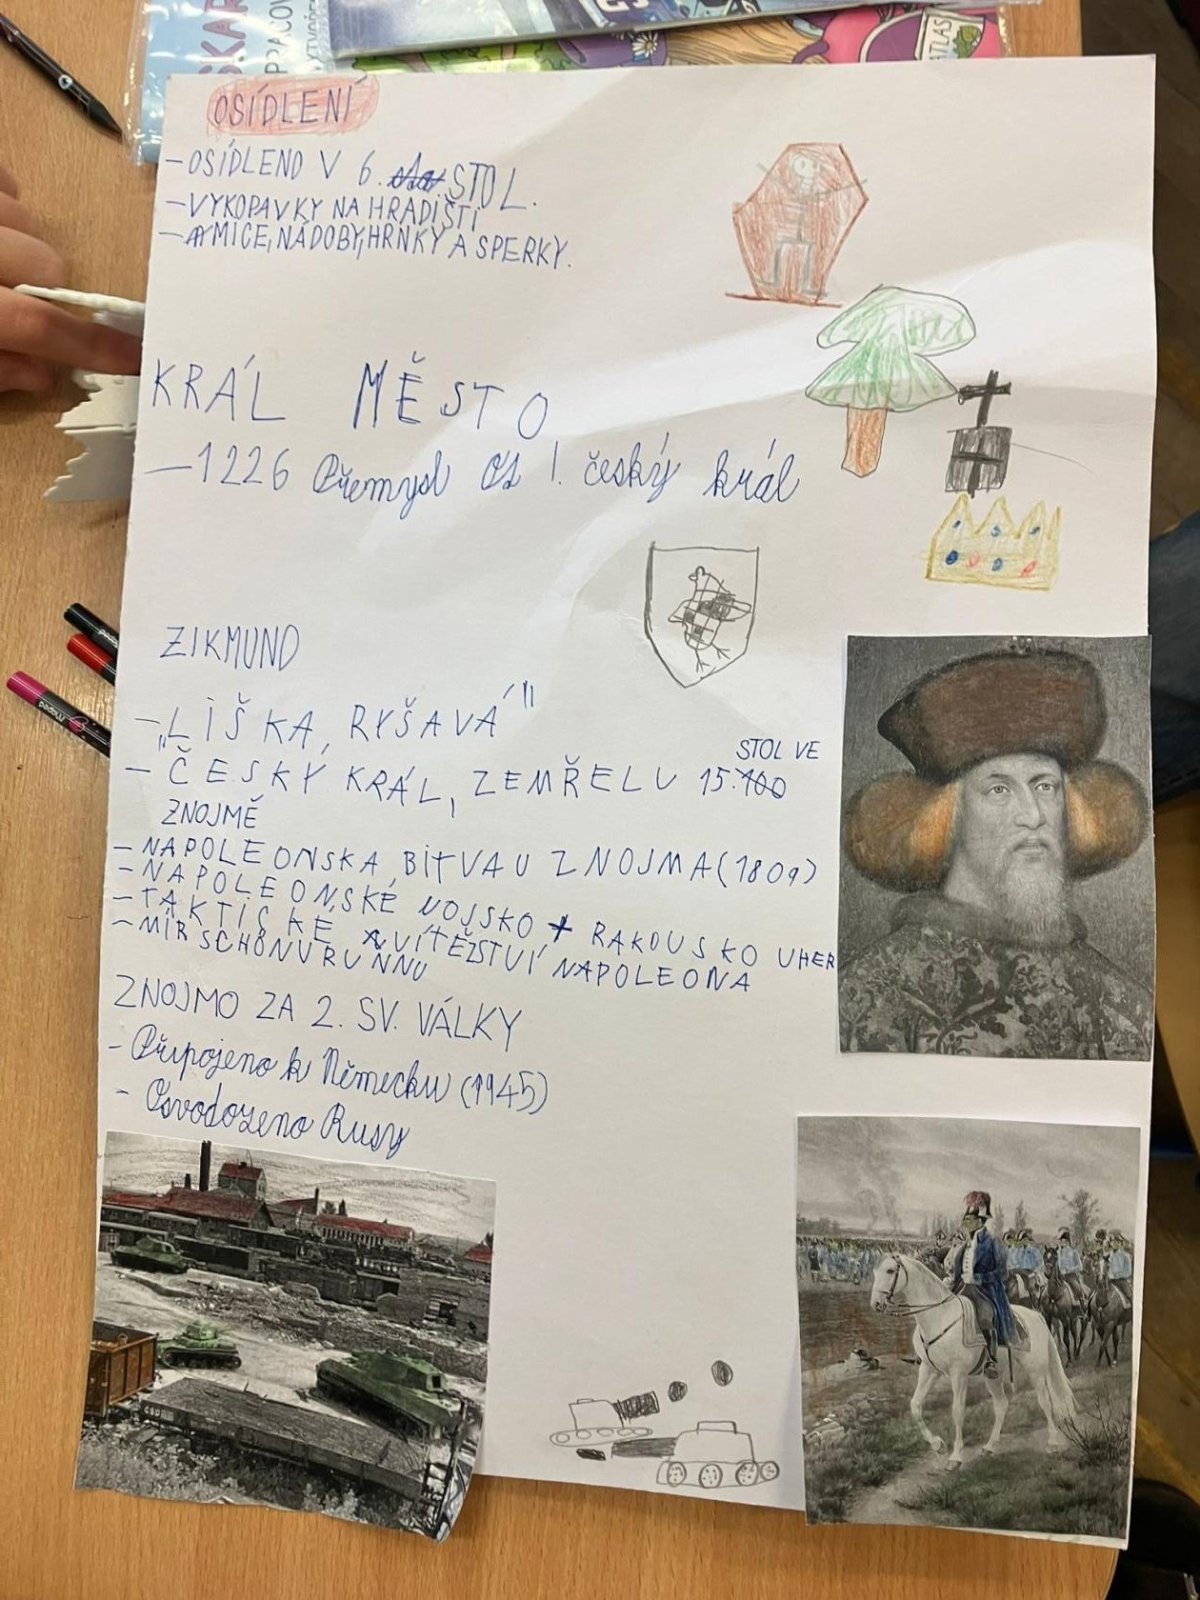 SKAR
PRACOV
ATLAS
OSÍDLENÍ
- OSÍDLENO V 6. STOL.
- VYKOPAVKY NA HRADIŠTI
- MICE, NÁDOBY, HRNKY A SPERKY.
KRÁL MĚSTO
- 1226 Přemysl Ot I. český král
ZIKMUND
- „LIŠKA, RYŠAVÁ"
STOL VE
- ČESKÝ KRÁL, ZEMŘEL U 15.
ZNOJMĚ
- NAPOLEONSKA BITVA U ZNOJMA (1809)
- NAPOLEONSKÉ VOJSKO + RAKOUSKO UHER
- TAKTICKÉ VÍTĚZSTVÍ NAPOLEONA
- MÍR SCHONURUNNU
ZNOJMO ZA 2. SV. VÁLKY
- Připojeno k Německu (1945)
- Osvobozeno Rusy